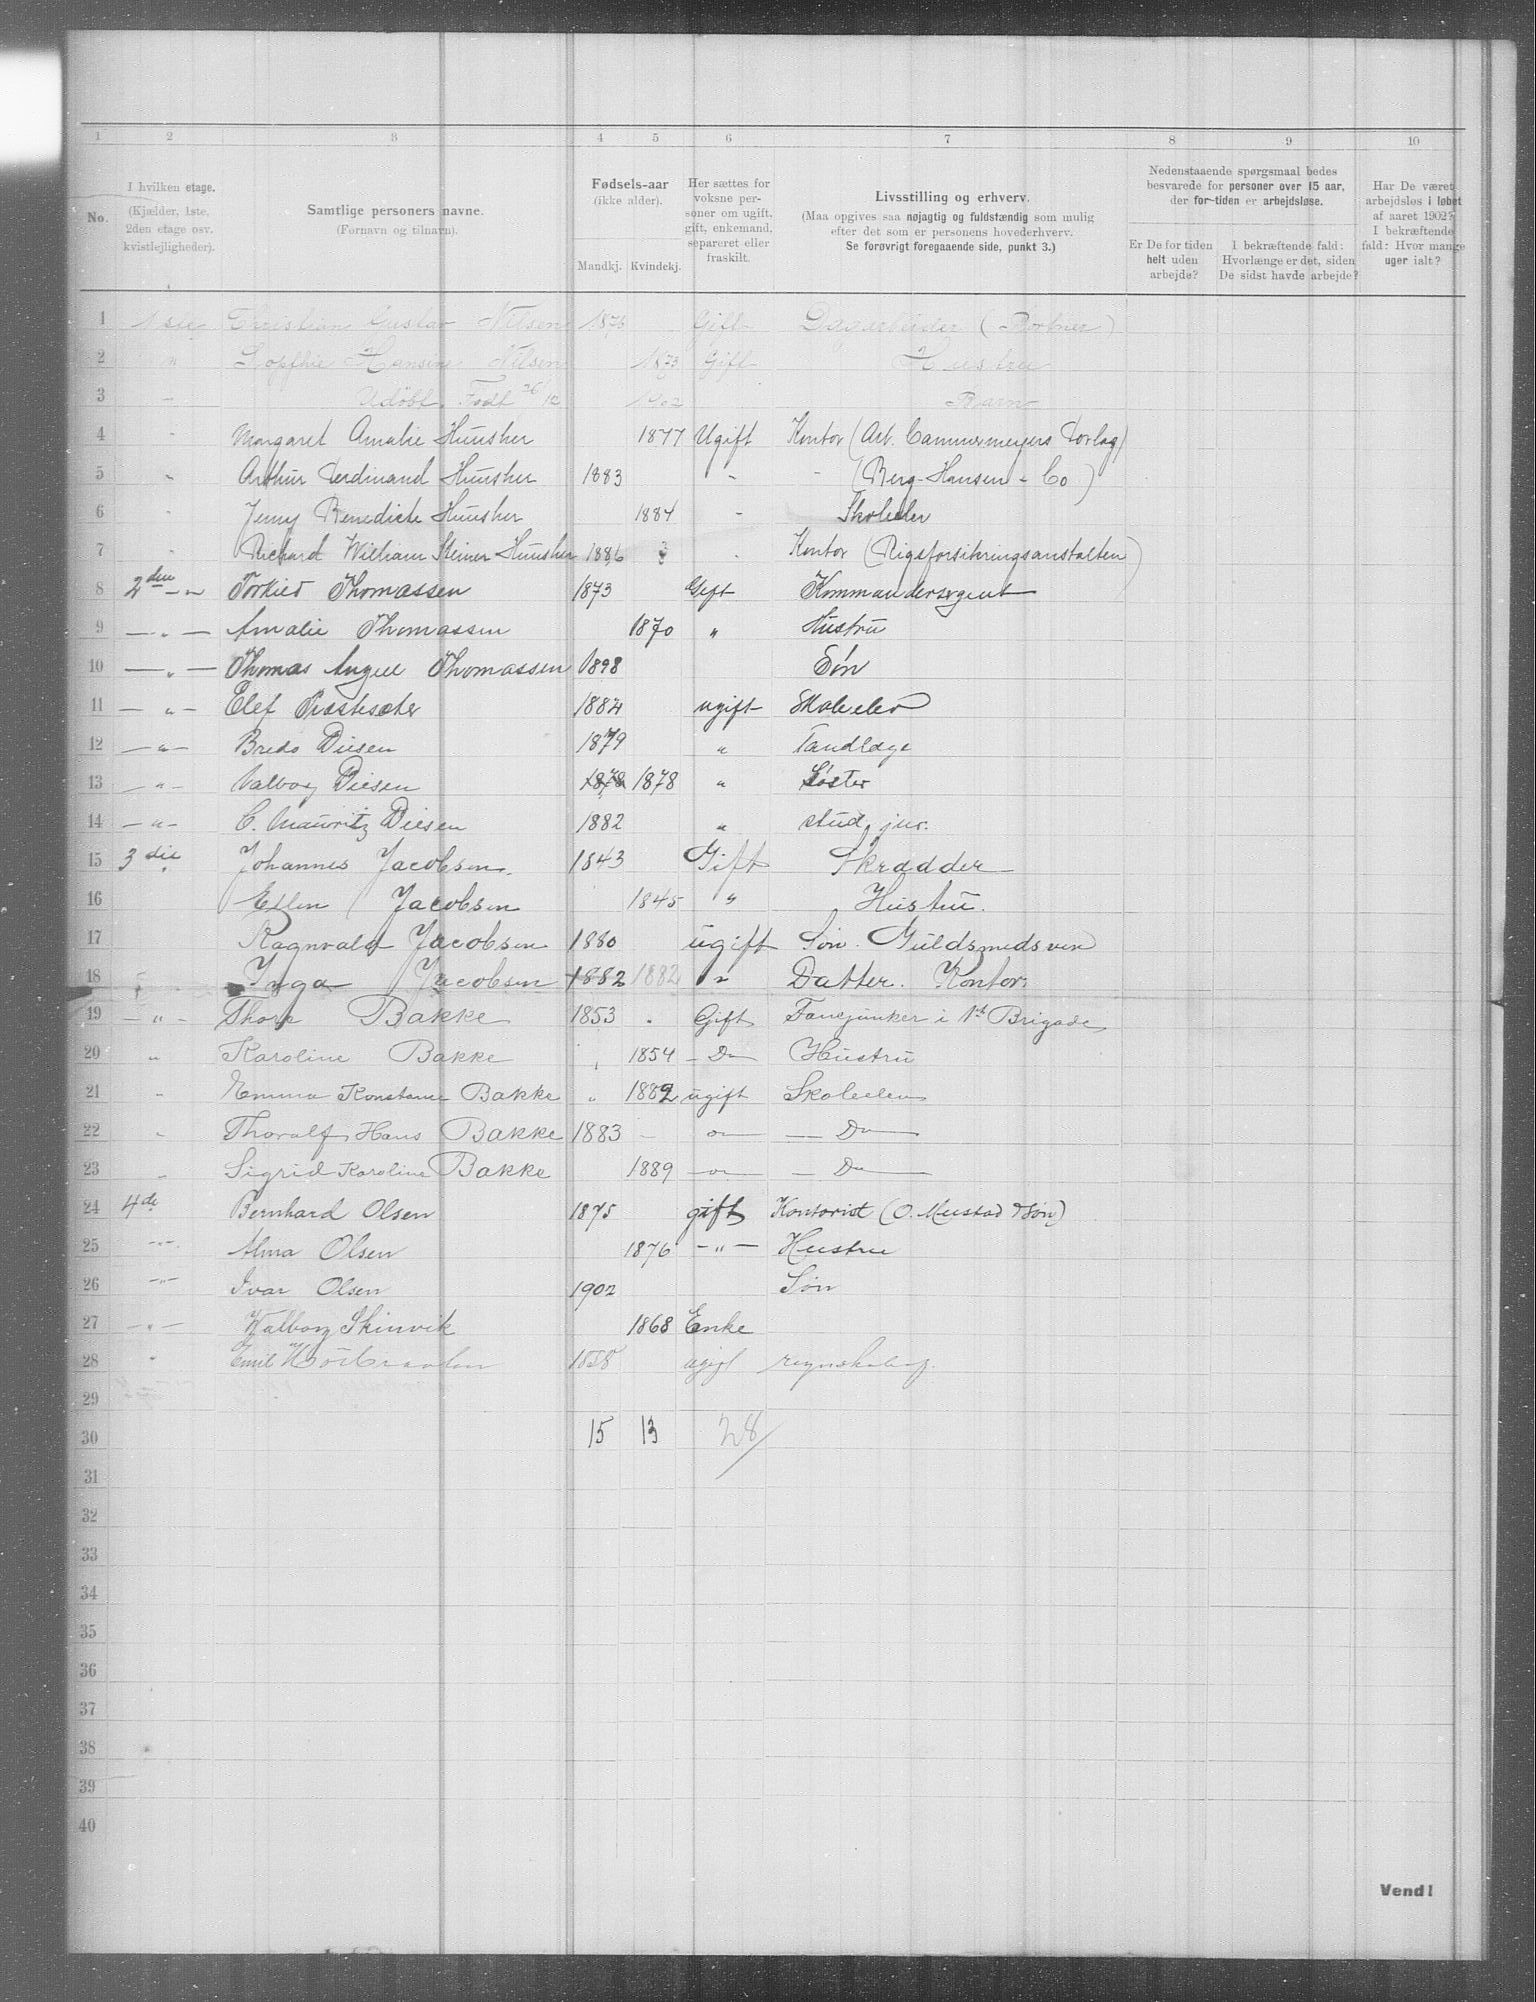 1 2 3 4 5 6 7 8 9 10
No.
I hvilken etage.
(Kjælder, 1ste,
2den etage osv.
kvistlejligheder).
Samtlige personers navne.
(Fornavn og tilnavn).
Fødsels-aar
(ikke alder).
Mandkj. Kvindekj.
Her sættes for
voksne per-
soner om ugift,
gift, enkemand,
separeret eller
fraskilt.
Livsstilling og erhverv.
(Maa opgives saa nøjagtig og fuldstændig som mulig
efter det som er personens hovederhverv.
Se forøvrigt foregaaende side, punkt 3.)
Nedenstaaende spørgsmaal bedes
besvarede for personer over 15 aar,
der for tiden er arbejdsløse.
Er De for tiden
helt uden
arbejde?
I bekræftende fald:
Hvorlænge er det, siden
De sidst havde arbejde?
Har De været
arbejdsløs i løbet
af aaret 1902?
I bekræftende
fald: Hvor mange
uger ialt?
1 1ste Christian Gustav Nilsen 1876 Gift Dagarbeider (Portner)
2 " Hansine Nilsen 1873 Gift Hustru
3 " Udöbt. Född 26/12 1902 Barn
4 " Margaret Amalie Huusher 1877 Ugift Kontor (Alb. Cammermeyers Forlag)
5 " Arthur Ferdinand Huusher 1883 " " (Berg-Hansen & Co)
6 " Jenny Benedicte Huusher 1884 " Skoleelev
7 " Richard William Steiner Huusher 1886 " Kontor (Rigsforsikringsanstalten)
8 2den -"- Torkild Thomassen 1873 Gift Kommandersergent
9 -"- Amalie Thomassen 1870 " Hustru
10 -"- Thomas Angell Thomassen 1898 Søn
11 -"- Elef Præstesæter 1884 ugift Skoleelev
12 -"- Bredo Diesen 1879 " Tandlæge
13 -"- Valborg Diesen 1878 1878 " Søster
14 -"- C. Mauritz Diesen 1882 " stud. jur.
15 3die " Johannes Jacobsen. 1843 Gift Skrædder
16 Ellen Jacobsen 1845 " Hustru.
17 Ragnvald Jacobsen 1880 ugift Søn. Guldsmedsven
18 Inga Jacobsen 1882 1882 " Datter. Kontor.
19 -"- Thore Bakke 1853 Gift Fanejunker i 1st Brigade
20 " Karoline Bakke " 1854 - Do Hustru
21 " Emma Konstanse Bakke " 1882 ugift Skoleelev
22 " Thoralf Hans Bakke 1883 - Do - Do
23 " Sigrid Karoline Bakke 1889 - Do - Do
24 4de Bernhard Olsen 1875 gift Kontorist (O. Mustad & Søn)
25 -"- Alma Olsen 1876 -"- Hustru
26 -"- Ivar Olsen 1902 Søn
27 -"- Walborg Skinvik 1868 Enke
28 " Emil 1858 ugift
29
30 15 13 28
31
32
33
34
35
36
37
38
39
40
Vend!